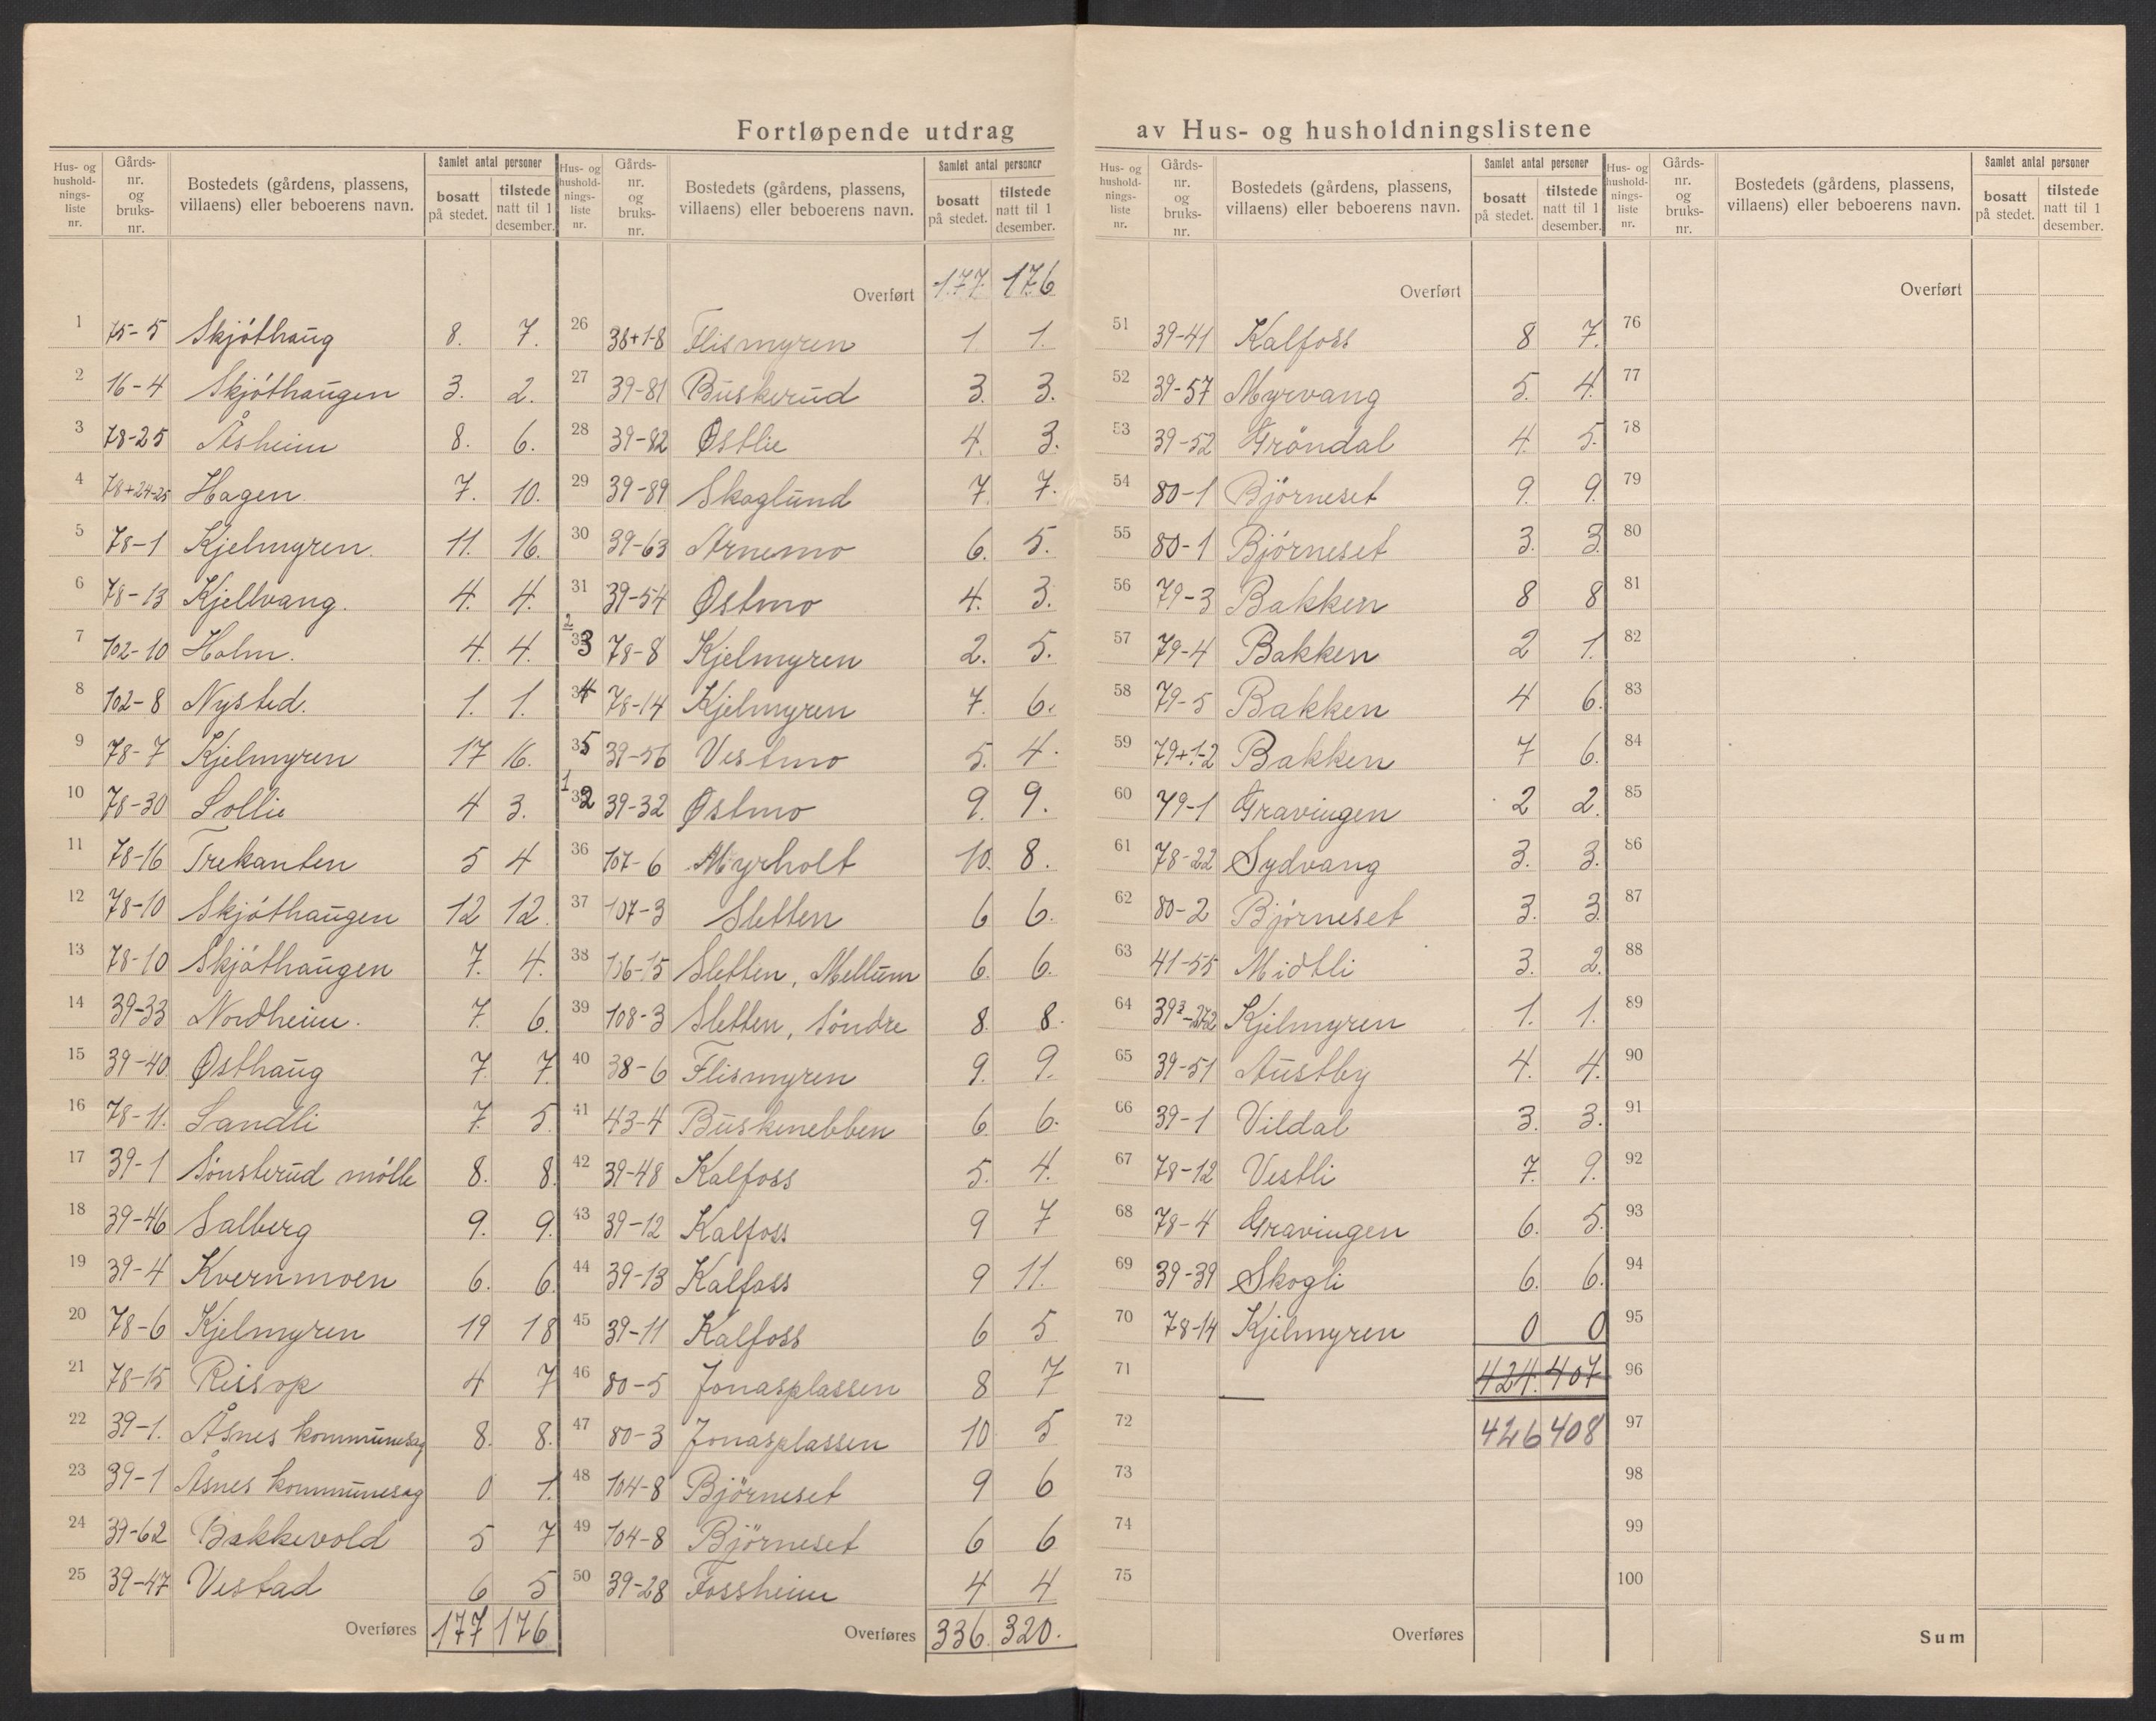 Fortløpende utdrag av Hus- og husholdningslistene
Hus- og hushold-nings-liste nr. Gårds-nr. og bruks-nr. Bostedets (gårdens, plassens, villaens) eller beboerens navn. Samlet antal personer bosatt på stedet. tilstede natt til 1 desember.
1 75-5 Skjöthaug 8. 7.
2 16-4 Skjöthaugen 3. 2.
3 78-25 Åsheim 8. 6.
4 78+24-25 Hagen. 7. 10.
5 78-1 Kjelmyren. 11. 16.
6 78-13 Kjellvang. 4. 4.
7 102-10 Holm. 4. 4.
8 102-8 Nysted. 1. 1.
9 78-7 Kjelmyren 17 16.
10 78-30 Sollie 4 3.
11 78-16 Trekanten 5 4
12 78-10 Skjöthaugen 12 12.
13 78-10 Skjöthaugen 7. 4.
14 39-33 Nordheim. 7. 6.
15 39-40 Østhaug 7. 7.
16 78-11. Sandli 7. 5.
17 39-1 Sönsterud mölle 8. 8.
18 39-46 Salberg 9. 9.
19 39-4 Kvernmoen 6. 6.
20 78-6 Kjelmyren 19 18
21 78-15 Reisop 4 7
22 39-1. Åsnes kommunesag 8. 8.
23 39-1 Åsnes kommunesag 0 1.
24 39-62 Bakkevold 5 7
25 39-47 Vestad 6 5
Overføres 177 176
Hus- og hushold-nings-liste nr. Gårds-nr. og bruks-nr. Bostedets (gårdens, plassens, villaens) eller beboerens navn. Samlet antal personer bosatt på stedet. tilstede natt til 1 desember.
Overført 177. 176
26 38+1-8 Flismyren 1. 1.
27 39-81 Buskerud 3. 3.
28 39-82 Østlie 4. 3.
29 39-89 Skoglund 7. 7.
30 39-63 Arnemo 6. 5.
31 39-54 Østmo 4. 3.
33 78-8 Kjelmyren 2. 5.
34 78-14 Kjelmyren 7. 6.
35 39-56 Vestmo 5. 4.
32 39-32 Østmo 9. 9.
36 107-6 Myrholt 10. 8.
37 107-3 Sletten 6 6.
38 106-15 Sletten, Mellum 6. 6.
39 108-3 Sletten, Söndre 8. 8.
40 38-6 Flismyren 9. 9.
41 43-4 Buskenebben 6. 6.
42 39-48 Kalfoss 5. 4.
43 39-12 Kalfoss 9 7
44 39-13 Kalfoss 9 11.
45 39-11 Kalfoss 6 5
46 80-5 Jonasplassen 8 7
47 80-3 Jonasplassen 10 5
48 104-8 Björneset 9 6
49 104-8 Björneset 6 6
50 39-28 Fossheim 4 4
Overføres 336. 320.
Hus- og hushold-nings-liste nr. Gårds-nr. og bruks-nr. Bostedets (gårdens, plassens, villaens) eller beboerens navn. Samlet antal personer bosatt på stedet. tilstede natt til 1 desember.
Overført
51 39-41 Kalfoss 8 7.
52 39-57 Myrvang 5. 4.
53 39-52 Gröndal 4. 5.
54 80-1 Björneset 9. 9.
55 80-1 Björneset 3. 3.
56 79-3 Bakken 8 8
57 79-4 Bakken 2 1.
58 79-5 Bakken 4 6.
59 79+1-2 Bakken 7 6.
60 79-1 Gravingen 2 2.
61 78-22 Sydvang 3. 3.
62 80-2 Björneset 3. 3.
63 41-55 Midtli 3. 2.
64 Kjelmyren 1. 1.
65 39-51 Austby 4. 4.
66 39-1 Vildal 3. 3.
67 78-12 Vestli 7. 9.
68 78-4 Gravingen 6. 5.
69 39-39 Skogli 6. 6.
70 78-14 Kjelmyren 0 0
71 424. 407
72 426 408
73
74
75
Overføres
Hus- og hushold-nings-liste nr. Gårds-nr. og bruks-nr. Bostedets (gårdens, plassens, villaens) eller beboerens navn. Samlet antal personer bosatt på stedet. tilstede natt til 1 desember.
Overført
76
77
78
79
80
81
82
83
84
85
86
87
88
89
90
91
92
93
94
95
96
97
98
99
100
Sum